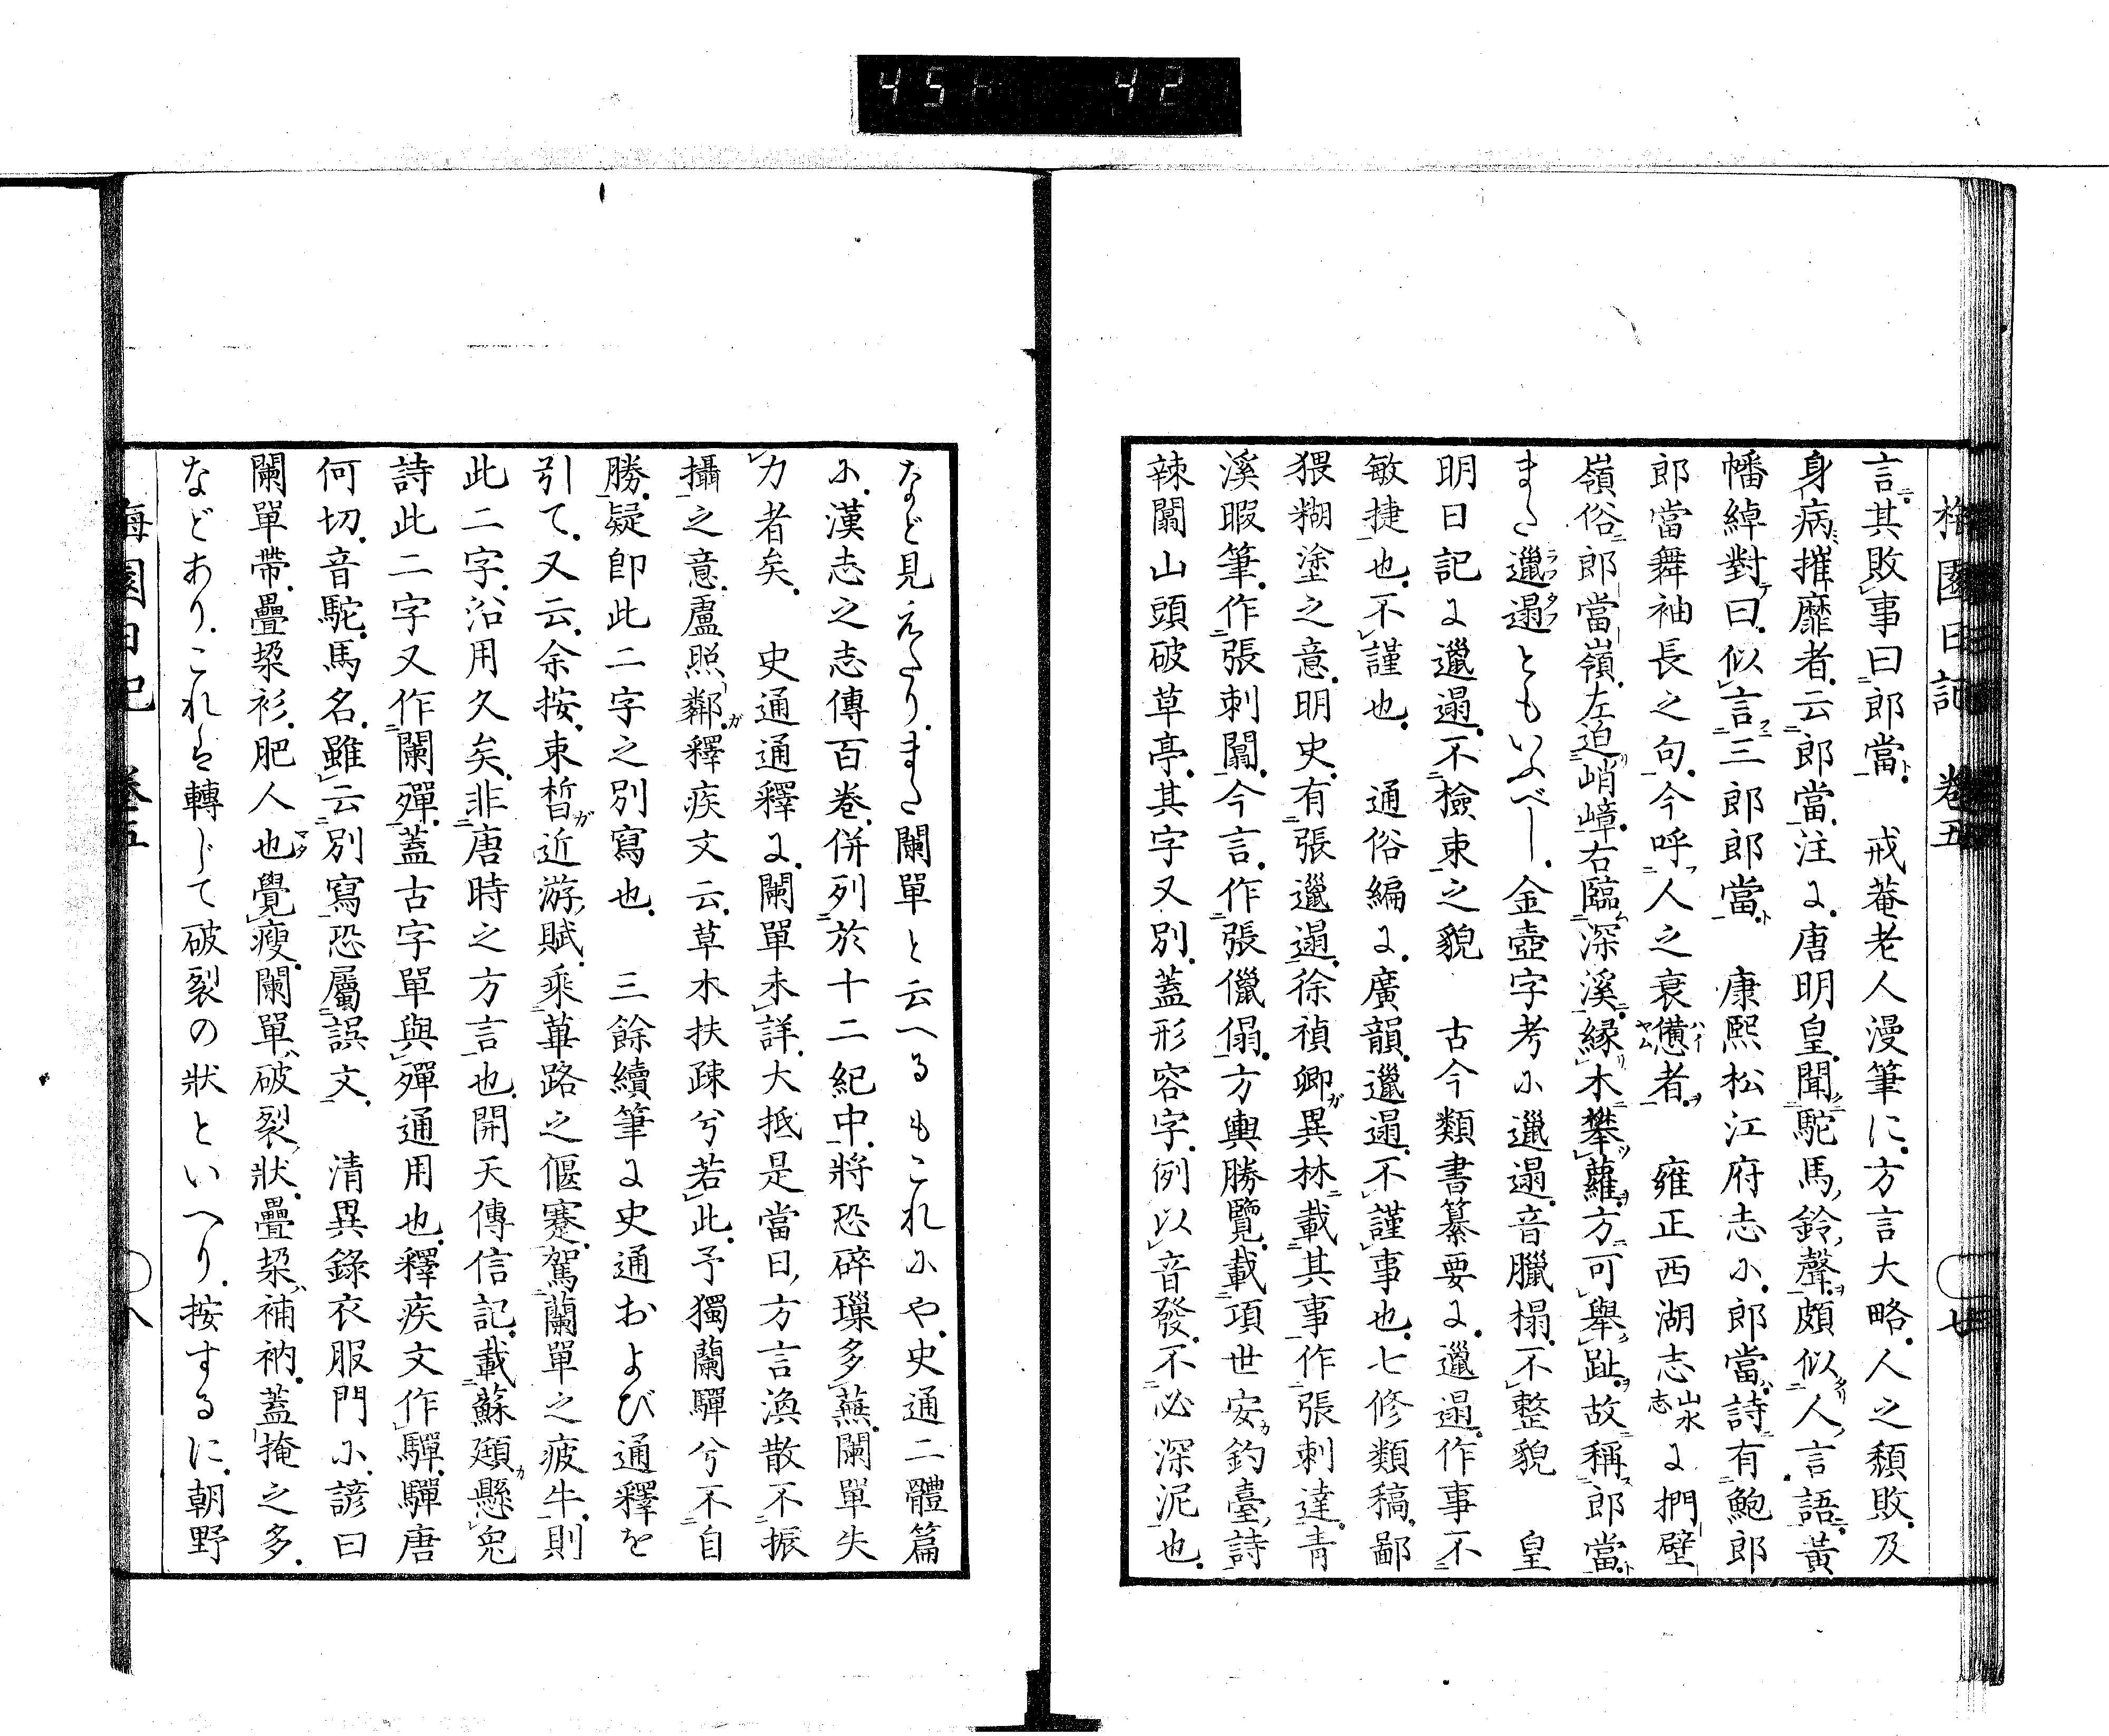 45 42
梅園日記 卷五 廿
言其敗事曰郎當。 戒菴老人漫筆に。方言大略。人之頽敗。及
身病摧靡者。云郎當。注に。唐明皇。聞駝馬鈴聲。頗似人言語。黃
幡綽對曰。似言三郎郎當。 康熙松江府志に。郎當。詩有鮑郎
郎當舞袖長之句。今呼人之衰憊者。 雍正西湖志山水志に捫壁
嶺俗郎當嶺。左迫峭嶂。右臨深溪。縁木攀蘿。方可擧趾。故稱郎當。
また邋遢ともいふべし。金壺字考に邋遢。音臘榻。不整貌 皇
明日記に邋遢。不檢束之貌 古今類書纂要に。邋遢。作事不
敏捷也。不謹也。 通俗編に。廣韻。邋遢。不謹事也。七修類稿。鄙
猥糊塗之意。明史。有張邋遢。徐禎卿異林載其事。作張剌達。青
溪暇筆。作張剌闒。今言。作張儠偈。方輿勝覽。載項世安釣臺詩
辣闒山頭破草亭。其字又別。蓋形容字。例以音發。不必深泥也。
など見えたり。また闌單と云へるもこれにや。史通二體篇
に。漢志之志傳百卷。併列於十二紀中。將恐碎璅多蕪。闌單失
力者矣。 史通通釋に。闌單未詳。大抵是當日方言渙散不振
攝之意。盧照鄰釋疾文云。草木扶疎兮若此。予獨蘭驒兮不自
勝。疑卽此二字之別寫也。 三餘續筆に史通および通釋を
引て。又云。余按。束晳近游賦。乘蓽路之偃蹇。駕蘭單之疲牛。則
此二字。沿用久矣。非唐時之方言也。開天傳信記。載蘇頲懸兔
詩此二字又作闌殫。蓋古字單與殫通用也。釋疾文作驒。驒唐
何切。音駝。馬名。雖云別寫。恐屬誤文。 清異錄衣服門に。諺曰
闌單帶。疊桬衫。肥人也覺瘦。闌單破裂狀。疊桬補衲。蓋掩之多。
などあり。これは轉じて破裂の狀といへり。按するに。朝野
梅園日記 卷五 八